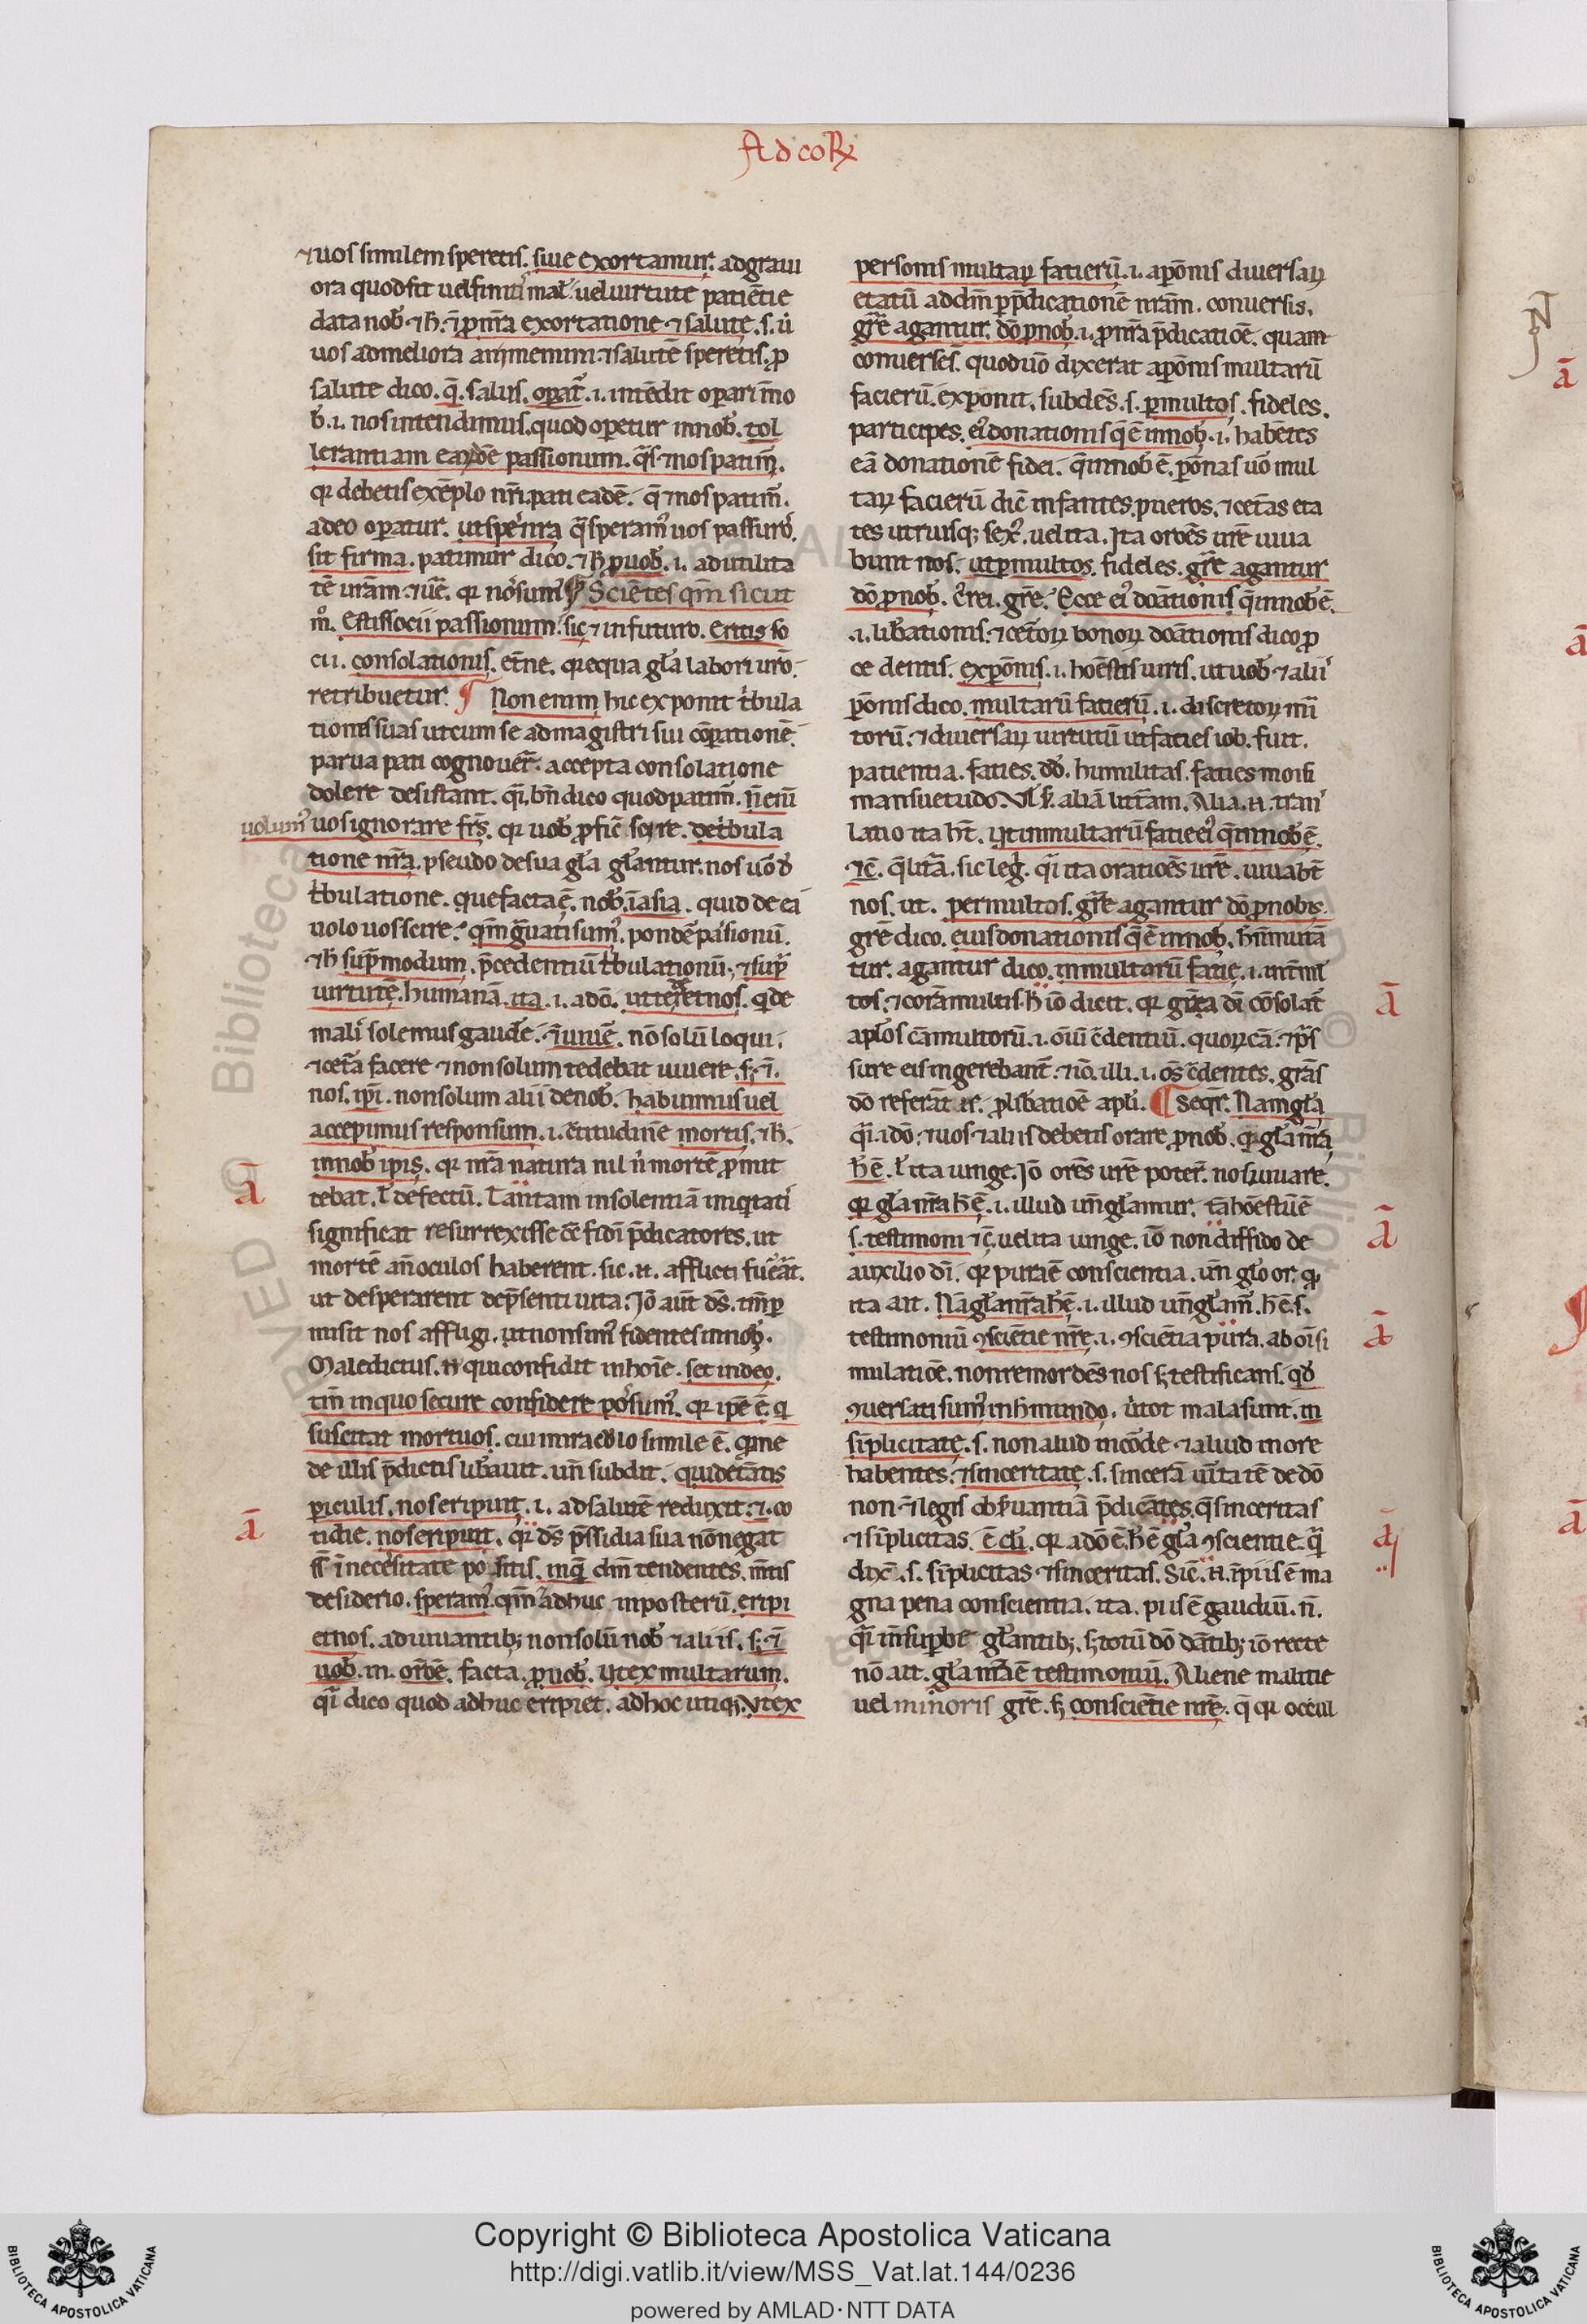 Ad coꝶ
⁊ uos similem speretis. siue exortamur. ad graui
ora quod fit uel finitͥ mal̄. uel uirtute patiētie
data nob̄. ⁊ h̄. ī ꝓ nr̄a exortatione ⁊ salute. s. ū
uos ad meliora animemini. ⁊ salutē speretis. ꝓ
salute dico. q̄. salus. opat̄. i. intēdit operari ī no
b̄. i. nos intendimus. quod operetur in nob̄. tol
lerantiam earūdē passionum. q̄s ⁊ nos patim̄.
qr debetis exēplo nr̄i. pati eadē. q̄ ⁊ nos patim̄.
adeo operatur. ut spes nr̄a q̄ speramꝰ uos passuros.
sit firma. patimur dico. ⁊ h̄ ꝓ uob̄. i. ad utilita
tē ur̄am. qr nō sumꝰ Sciētes qm̄ sicut
m̊. Estis socii passionum. sic ⁊ in futuro. eritis so
cii. consolationis. et̄ne. qr equa gl̄a labori ur̄o.
retribuetur. ¶ Non enim hic exponit t̄bula
tiones suas ut cum se ad magistri sui cōparationē.
parua pati cognouer̄. accepta consolatione
dolere desistant. qͥ. bn̄ dico quod patim̄. n̄ enī
uolumꝰ uos ignorare frs̄. qr uob̄ ꝓfic̄ scire. de t̄bula
tione nr̄a. pseudo de sua gl̄a gl̄antur. nos uō d̄
t̄bulatione. que facta ē. nob̄. ī asia. quid de ea
uolo uos scire. qm̄ ḡuati sumꝰ. pondē passionū.
⁊ h̄ supͣ modum. p̄cedentiū t̄bulationū. ⁊ supͣ
uirtutē. humanā. ita. i. adō. ut tederet nos. q de
malis solemus gaudē. uiuē. nō solū loqui.
⁊ cet̄a facere ⁊ non solum tedebat uiuere. s; ⁊ ī.
nos. ip̄i. non solum alii de nob̄. habuimus uel
accepimus responsum. i. c̄titudinē mortis. ⁊ h̄.
in nob̄ ip̄is. qr nr̄a natura nil n̄ mortē ꝓmit
ā
tebat. ł defectū. Tantam insolentiā iniqͥtatis
significat resurrexisse cōt̄ fidei p̄dicatores. ut
mortē an̄ oculos haberent. sic. n. afflicti fuer̄at.
ut desperarent de p̄senti uita. Iō aut̄ ds̄. īm ꝑ
misit nos affligi. ut non simꝰ fidentes in nob̄.
Maledictus. n. qui confidit in hoīe. set in deo.
tm̄ in quo secure confidere possumꝰ. qr ip̄e ē. q
suscitat mortuos. cui miraculo simile ē. qꝫ me
de illis p̄dictis lib̄auit. un̄ subdit. qui de tātis
periculis. nos eripuit. i. ad salutē reduxit. ⁊. co
ā
tidie. nos eripuit. qr ds̄ p̄ssidia sua nō negat
ī necessitate po sitis. in qͣ dm̄ tendentes. mtīs
desiderio. speramꝰ. qm̄ adhuc in posterū. eripi
et nos. adiuuantibꝫ non solū nob̄ ⁊ aliis. s; ⁊ ī
uob̄. in. or̄ōe. facta. ꝓ uob̄. ut ex multarum.
qͣ dico quod adhuc eripiet. ad hoc utiqꝫ. Vt ex
personis multaꝝ fatierū. i. a ꝑsonis diuersaꝝ
etatū ad dm̄ ꝑ p̄dicationē nr̄am. conuersis.
gr̄e agantur. dō ꝓ nob̄. i. ꝓ nr̄a p̄dicatiōe. quam
conuerses. quod uō dixerat a ꝑsonis multarū
facierū. exponit. subdēs. s. ꝑ multos. fideles.
participes. eiꝰ donationis q̄ ē in nob̄. i. habētes
eā donationē fidei. q̄ in nob̄ ē. ꝑsonas uō mul
taꝝ facierū dic̄ infantes. pueros. ⁊ cet̄as eta
tes utriusqꝫ sexꝰ. uel ita. Ita or̄ōes ur̄e iuua
bunt nos. ut ꝑ multos. fideles. gr̄e agantur
dō ꝓ nob̄. gr̄e. Ecce eiꝰ doātionis q̄ in nob̄ ē.
.i. lib̄ationis. ⁊ cet̄oꝝ bonoꝝ doātionis dico ꝓ
ce dentis. ex ꝑsonis. i. hoēstis uiris. ut uob̄ ⁊ aliis
ꝑsonis dico. multarū fatierū. i. discretoꝝ mi
torū. ⁊ diuersaꝝ uirtutū ut facies iob. fuit.
patientia. faties. dd̄. humilitas. faties moisi
mansuetudo. Vł s̄. aliā litt̄am. Alia. n. tran̄s
latio ita h̄t. ut in multarū fatie eiꝰ q̄ in nob̄ ē.
⁊ c̄. q̄ litt̄a. sic leḡ. qͥ ita oratiōes ur̄e. iuuabt̄
nos. ut. per multos. gr̄e agantur dō ꝓ nobis.
gr̄e dico. eius donationis q̄ ē in nob̄. h̄ n̄ muta
tur. agantur dico. in multorū fatie. i. int̄ ml̄
tos. ⁊ corā multis. h̄ iō dicit. qr gr̄a dī cōsolat̄
ā
apl̄os cā multorū. i. oīuī c̄dentiū. quoꝝ cā. ⁊ p̄s
sure eis ingerebant̄. ⁊ iō. illi. i. oēs c̄dentes. gr̄as
dō referāt. ꝓ libatiōe apl̄i. ¶ Seqr̄. Nam gl̄a
qͥ. i dō. ⁊ uos ⁊ aliis debetis orare. ꝓ nob̄. qr gl̄a nr̄a
h̄ ē. ł ita iunge. Iō or̄ēs ur̄e poter̄. nos iuuare.
qr gl̄a nr̄a h̄ ē. i. illud un̄ gl̄amur. tā hoēstū ē
ā
s. testimoni ⁊ c̄. uel ita iunge. iō non diffido de
auxilio dī. qr pura ē conscientia. un̄ glo or. qꝫ
ita ait. Nā gl̄a nr̄a h̄ ē. i. illud un̄ gl̄am̄. h̄ ē. s.
testimoniū ꝯsciētie nr̄e. i. ꝯsciētia pura. ab oī si
ā
mulatiōe. non remordēs nos s; testificans. qd̄
ꝯuersati sumꝰ in h̄ mundo. u tot mala sunt. in
simplicitate. s. non aliud in corde ⁊ aliud in ore
habentes. ⁊ sinceritate. s. sincerā ueritatē de dō
non ī legis obseruantiā p̄dicātes. q̄ sinceritas
⁊ simplicitas. ē dī. qr a dō ē. h̄ ē gl̄a ꝯscientie. qͣ
ā
dix̄. s. simplicitas ⁊ sinceritas. Sic̄. n. īpiis ē ma
gna pena conscientia. ita. piis ē gaudiū. n̄.
qͣ in superbe gl̄antibꝫ. s; totū dō dātibꝫ. iō recte
nō ait. gl̄a nr̄a ē testimoniū. Aliene malitie
uel minoris gr̄e. s; consciētie nr̄e. q̄ qr occul
Copyright © Biblioteca Apostolica Vaticana
http://digi.vatlib.it/view/MSS_Vat.lat.144/0236
powered by AMLAD·NTT DATA
BIBLIOTECA APOSTOLICA VATICANA
BIBLIOTECA APOSTOLICA VATICANA